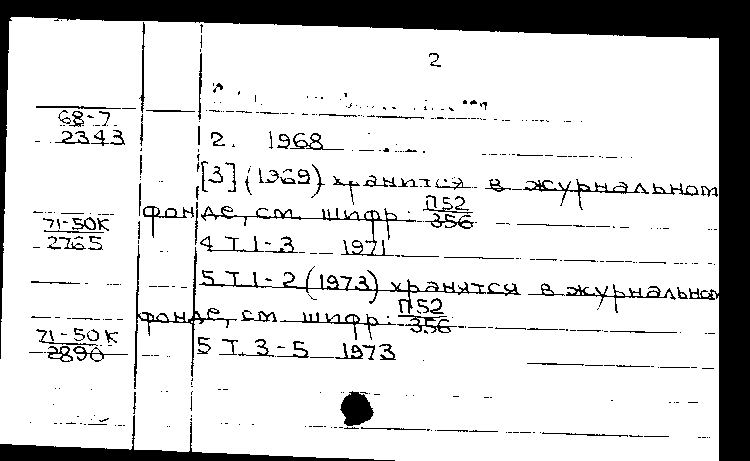 2
68-7
2343
2. 1968
[3] (1969) хранится в журнальном
фонде, см. шифр: П52/356
71-50К
2765
4 Т. 1-3 1971
5 Т. 1-2 (1973) хранятся в журнальном
фонде, см. шифр: П52/356
71-50К
2890
5 Т. 3-5 1973